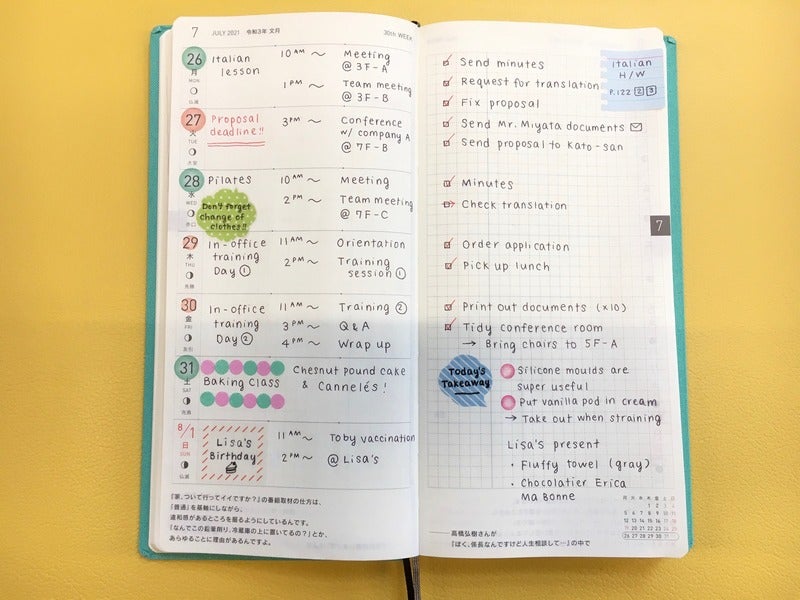 7 JULY 2021 令和3年 文月 30th WEEK
26
月
MON
仏滅
Italian
lesson
10 AM ~ Meeting
@ 3F-A
1 PM ~ Team meeting
@ 3F-B
27
火
TUE
大安
Proposal
deadline!!
3 PM ~ Conference
w/ company A
@ 7F-B
28
水
WED
赤口
Pilates
Don't forget
change of
clothes!!
10 AM ~ Meeting
2 PM ~ Team meeting
@ 7F-C
29
木
THU
先勝
In-office
training
Day ①
11 AM ~ Orientation
2 PM ~ Training
session ①
30
金
FRI
友引
In-office
training
Day ②
11 AM ~ Training ②
3 PM ~ Q & A
4 PM ~ Wrap up
31
土
SAT
先負
Baking Class
Chesnut pound cake
& Cannelés!
8/1
日
SUN
仏滅
Lisa's
Birthday
11 AM ~ Toby vaccination
2 PM ~ @ Lisa's
『家、ついて行ってイイですか?』の番組取材の仕方は、
「普通」を基軸にしながら、
違和感があるところを掘るようにしているんです。
「なんでこの鉛筆削り、冷蔵庫の上に置いてるの?」とか、
あらゆることに理由があるんですよ。
Send minutes
Request for translation
Fix proposal
Send Mr. Miyata documents
Send proposal to Kato-san
italian
H/W
P.122 2 3
Minutes
Check translation
7
Order application
Pick up lunch
Print out documents (x10)
Tidy conference room
→ Bring chairs to 5F-A
Today's
Takeaway
Silicone moulds are
super useful
Put vanilla pod in cream
→ Take out when straining
Lisa's present
• Fluffy towel (gray)
• Chocolatier Erica
Ma Bonne
月 火 水 木 金 土 日
1 2 3 4
5 6 7 8 9 10 11
12 13 14 15 16 17 18
19 20 21 22 23 24 25
26 27 28 29 30 31
——高橋弘樹さんが
『ぼく、係長なんですけど人生相談して…』の中で